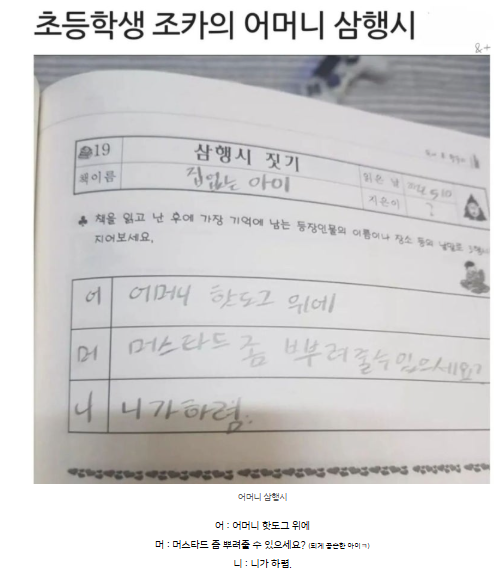 초등학생 조카의 어머니 삼행시
19
삼행시 짓기
책이름
집없는 아이
읽은 날
지은이
?
♣ 책을 읽고 난 후에 가장 기억에 남는 등장인물의 이름이나 장소 등의 낱말로 삼행시
지어보세요.
어
어머니 핫도그 위에
머
머스타드 좀 뿌려줄수있으세요?
니
니가하렴.
어머니 삼행시
어 : 어머니 핫도그 위에
머 : 머스타드 좀 뿌려줄 수 있으세요? (되게 공손한 아이ㅋ)
니 : 니가 하렴.